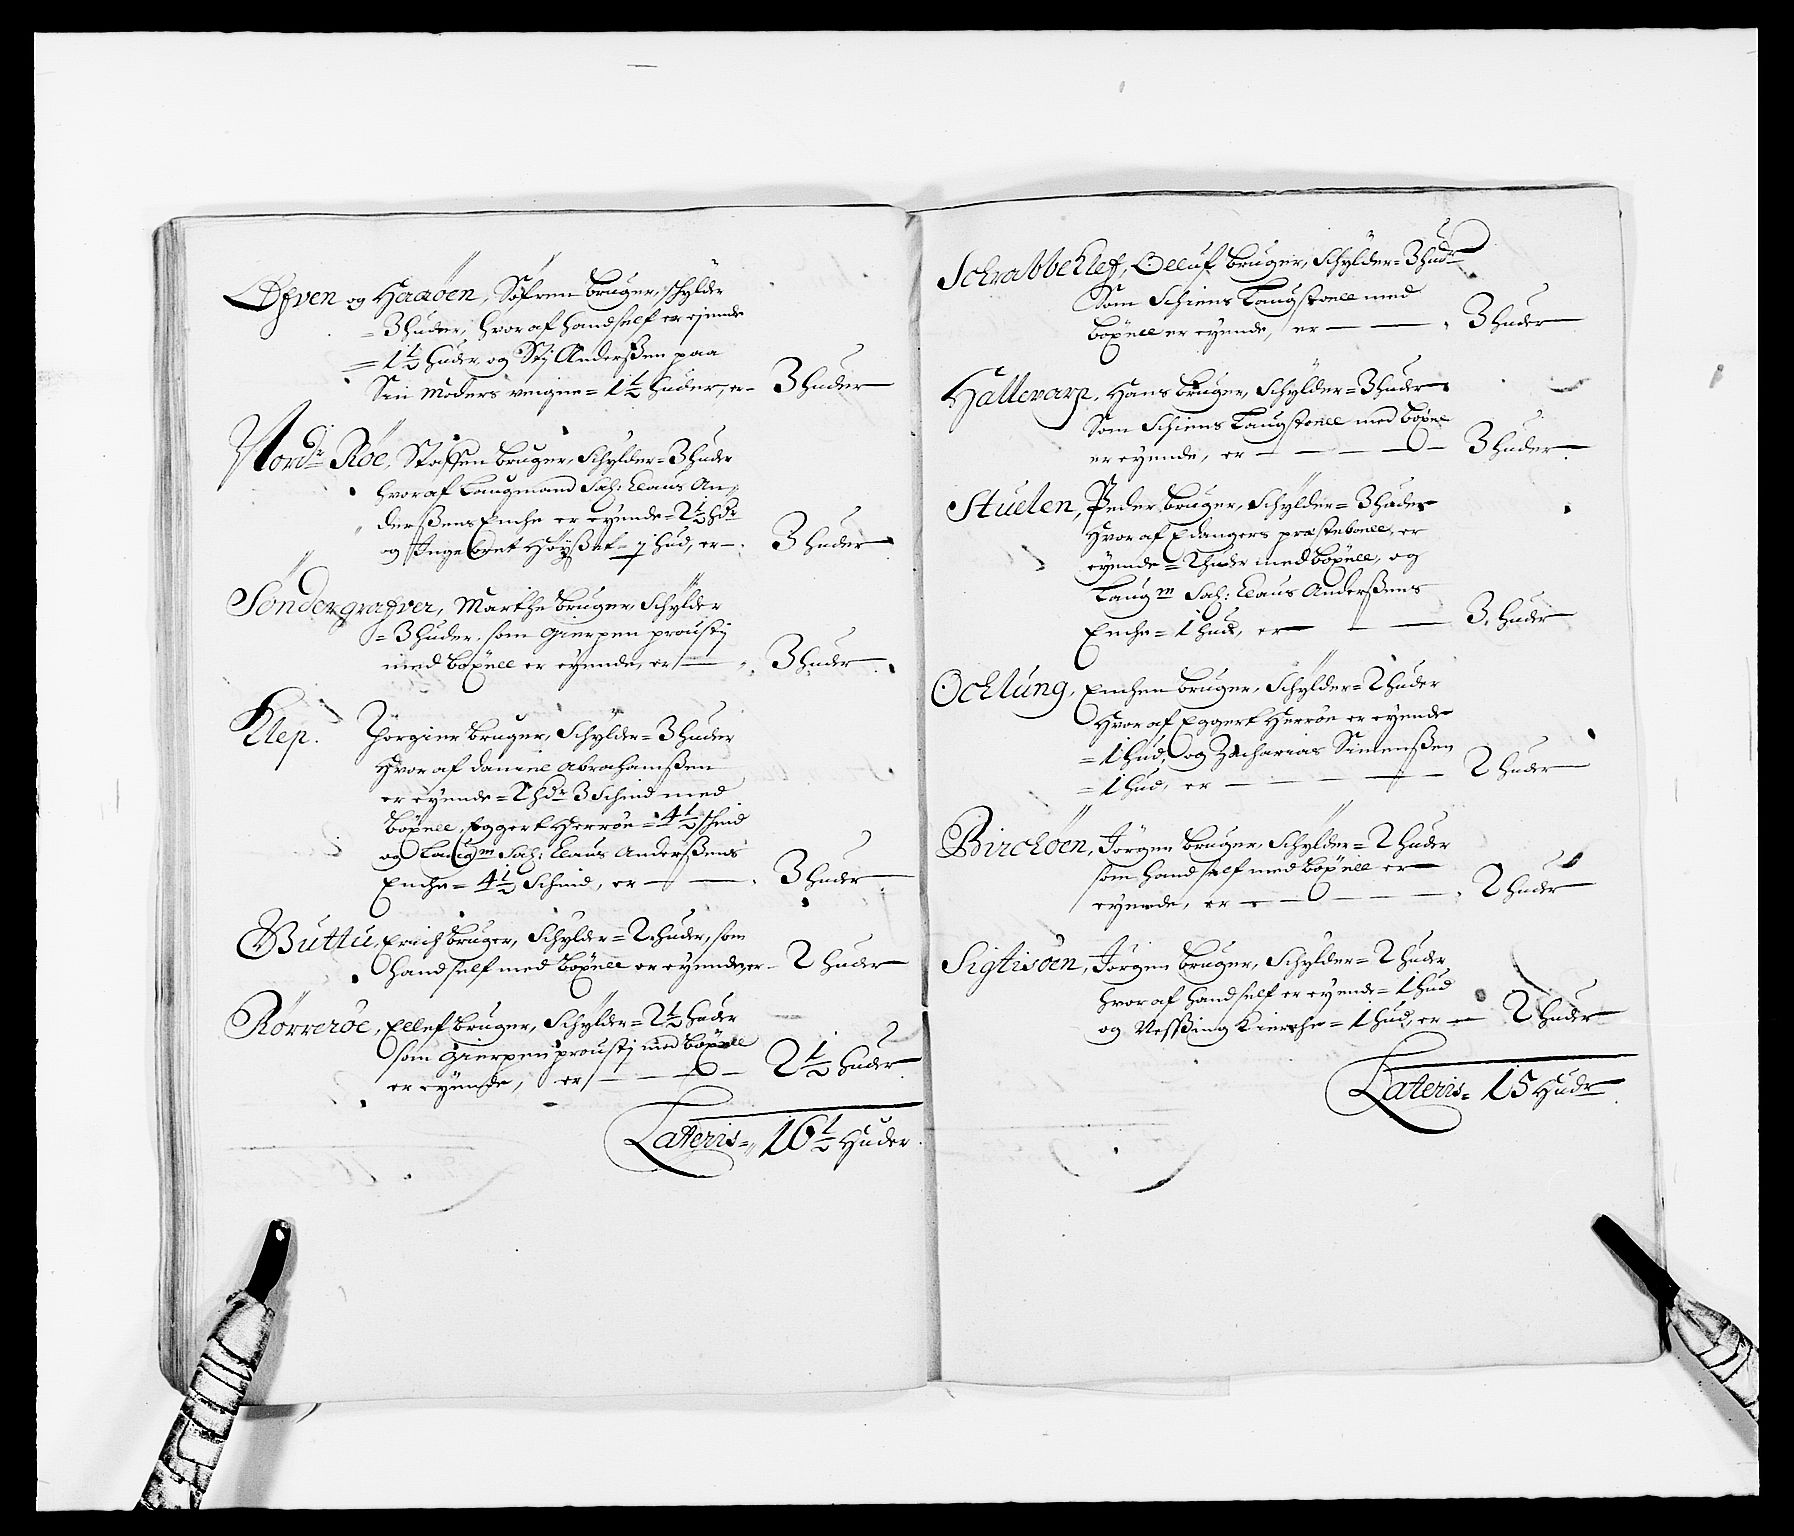 Øfven og Haaøen, Söfren bruger, schylder
= 3 huder, hvoraf hand self er ejende
= 1½ huder og Stj Anderßen paa
Sin Moders veigne = 1½ huder, er - 3 huder
Nordr Röe, Staffen bruger, Schylder = 3 huder
hvoraf Laugmand Sal: Claus An-
derßens Enche er eyende = 2½ hdr
og Ingebret Høyßet = ½ hud, er - 3 huder
Söndergrafver, Marthe bruger, Schylder
= 3 huder, som Gierpen proustj
med böxell er eyende, er - 3 huder
Klep. Thörgier bruger, Schylder = 3 huder
Hvoraf Daniel Abrahamßen
er eyende = 2 hdr 3 Schind med
böxell, Eggert Herröe = 4½ schind
og Laugm Sal: Claus Anderßens
Enche = 4½ Schind, er - 3 huder
Buttu, Erich bruger, Schylder = 2 huder, som
hand self med böxell er eyende, er - 2 huder
Rörreröe, Ellef bruger, Schylder = 2½ huder
som Gierpen proustj med böxell
er eyende, er - 2½ huder
Lateris = 16½ Huder
Schrabbeklef, Olluf bruger, Schylder = 3 hudr
Som Schiens Laugstoell med
böxell er eyende, er - 3 huder
Hallevarp, Hans bruger, Schylder = 3 huder
Som Schiens Laugstoell med böxel
er eyende, er - 3 huder
Stuelen, Peder bruger, Schylder = 3 huder
Hvoraf Edangers præsteboell, er
eyende = 2 huder med böxell, og
Laugm Sal: Claus Anderßens
Enche = 1 hud, er - 3 huder
Ochlung, Enchen bruger, Schylder = 2 huder
Hvoraf Eggert Herröe er eyende
= 1 hud, og Zacharias Simenßen
= 1 hud, er - 2 huder
Birchöen, Jörgen bruger, Schylder = 2 huder
som hand self med böxell er
eyende, er - 2 huder
Sigtisöen, Jörgen bruger, Schylder = 2 huder
hvoraf hand self er eyende = 1 hud
og Neßing Kierche = 1 hud, er - 2 huder
Lateris = 15 Hudr